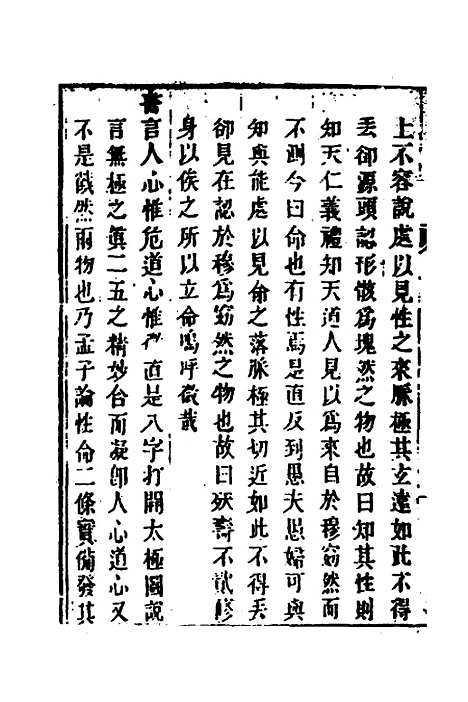 上不容說處以見性之來脈極其玄遠如此不得
丟卻源頭認形骸為塊然之物也故曰知其性則
知天仁義禮知天道人見以為來自於穆窈然而
不測今曰命也有性焉是直反到愚夫愚婦可與
知與能處以見命之落脈極其切近如此不得丟
卻見在認於穆為窈然之物也故曰殀壽不貳修
身以俟之所以立命嗚呼微哉
書言人心惟危道心惟直是八字打開太極圖說
言無極之真二五之精妙合而凝卽人心道心又
不是截然兩物也乃孟子論性命二條實備發其